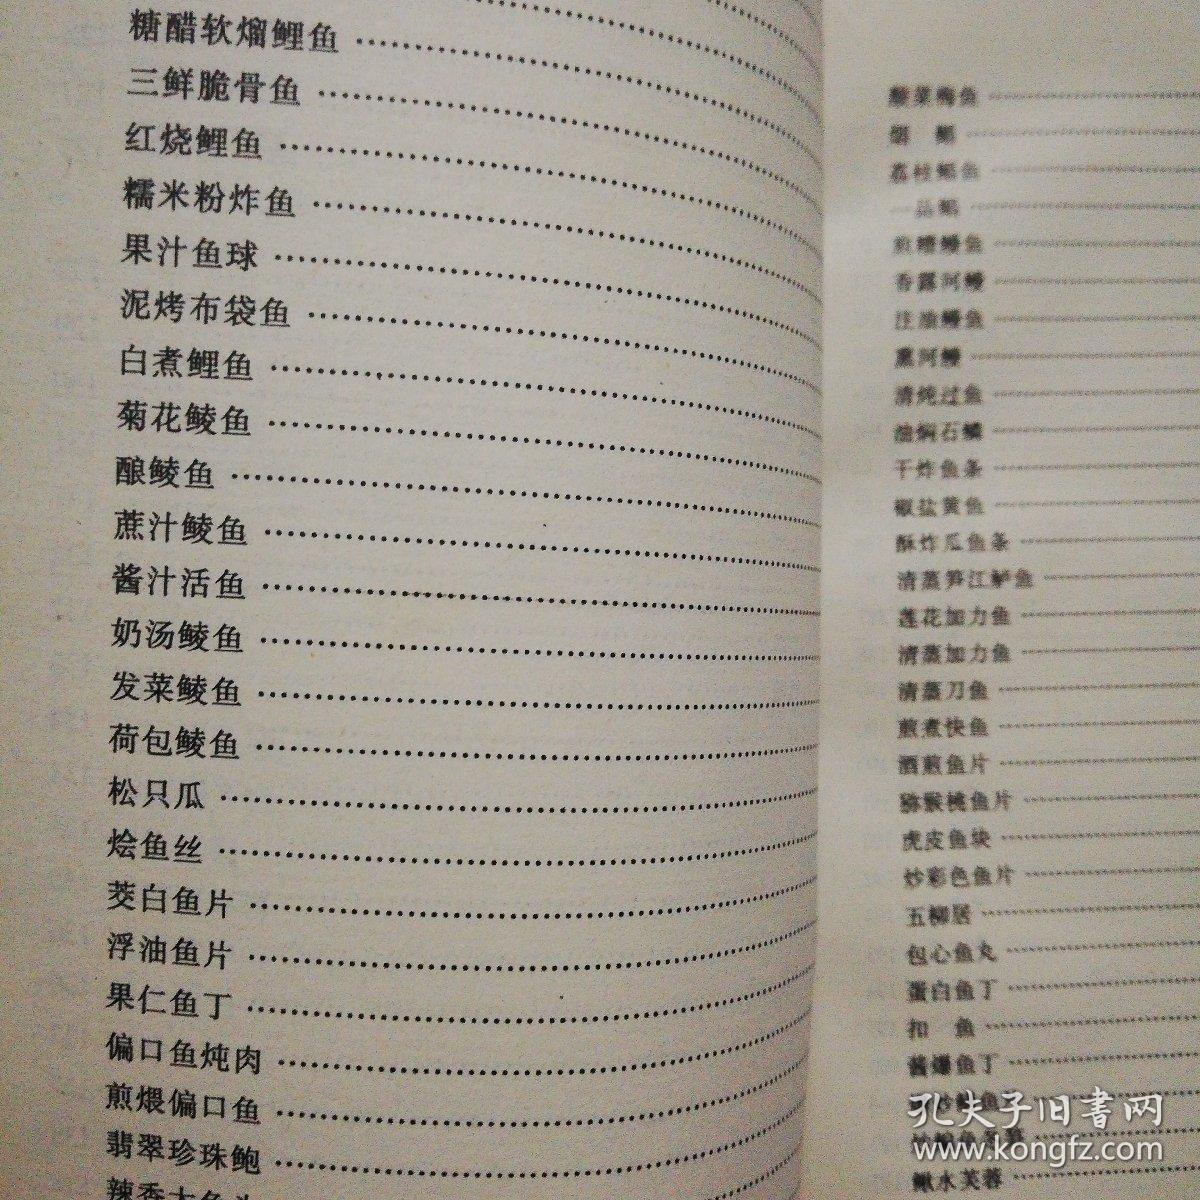 糖醋软熘鲤鱼
三鲜脆骨鱼
红烧鲤鱼
糯米粉炸鱼
果汁鱼球
泥烤布袋鱼
白煮鲤鱼
菊花鲮鱼
酿鲮鱼
蔗汁鲮鱼
酱汁活鱼
奶汤鲮鱼
发菜鲮鱼
荷包鲮鱼
松只瓜
烩鱼丝
茭白鱼片
浮油鱼片
果仁鱼丁
偏口鱼炖肉
煎煨偏口鱼
翡翠珍珠鲍
辣香大鱼头
煎糟鳗鱼
香露河鳗
注油鳗鱼
熏河鳗
清炖过鱼
油焖石鳞
干炸鱼条
椒盐黄鱼
酥炸瓜鱼条
清蒸笋江鲈鱼
莲花加力鱼
清蒸加力鱼
清蒸刀鱼
煎煮快鱼
酒煎鱼片
猕猴桃鱼片
虎皮鱼块
炒彩色鱼片
五柳居
包心鱼丸
蛋白鱼丁
扣 鱼
酱爆鱼丁
鳅水芙蓉
孔夫子旧書网
www.kongfz.com